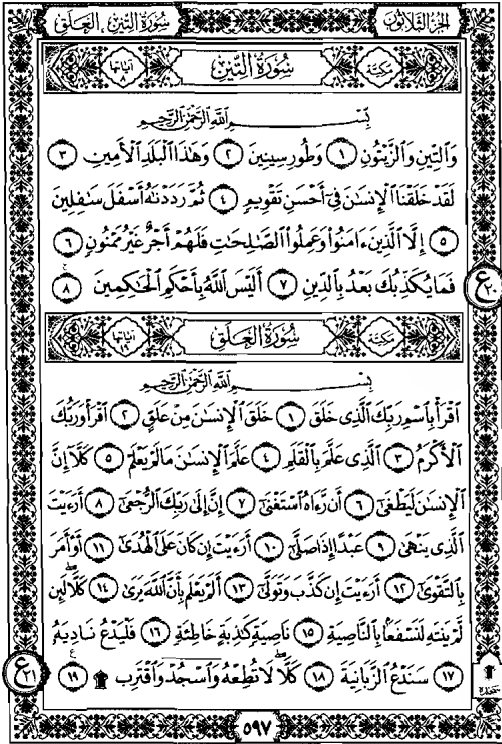 سُورَةُ التِّينِ ، العَلَقِ الجُزْءُ الثَّلَاثُونَ
مَكِّيَّة سُورَةُ التِّينِ آيَاتُهَا ٨
بِسْمِ اللَّهِ الرَّحْمَٰنِ الرَّحِيمِ
وَٱلتِّينِ وَٱلزَّيْتُونِ ١ وَطُورِ سِينِينَ ٢ وَهَٰذَا ٱلْبَلَدِ ٱلْأَمِينِ ٣
لَقَدْ خَلَقْنَا ٱلْإِنسَٰنَ فِىٓ أَحْسَنِ تَقْوِيمٍ ٤ ثُمَّ رَدَدْنَٰهُ أَسْفَلَ سَٰفِلِينَ
٥ إِلَّا ٱلَّذِينَ ءَامَنُوا۟ وَعَمِلُوا۟ ٱلصَّٰلِحَٰتِ فَلَهُمْ أَجْرٌ غَيْرُ مَمْنُونٍ ٦
فَمَا يُكَذِّبُكَ بَعْدُ بِٱلدِّينِ ٧ أَلَيْسَ ٱللَّهُ بِأَحْكَمِ ٱلْحَٰكِمِينَ ٨
ع ٢٠
مَكِّيَّة سُورَةُ العَلَقِ آيَاتُهَا ١٩
بِسْمِ اللَّهِ الرَّحْمَٰنِ الرَّحِيمِ
ٱقْرَأْ بِٱسْمِ رَبِّكَ ٱلَّذِى خَلَقَ ١ خَلَقَ ٱلْإِنسَٰنَ مِنْ عَلَقٍ ٢ ٱقْرَأْ وَرَبُّكَ
ٱلْأَكْرَمُ ٣ ٱلَّذِى عَلَّمَ بِٱلْقَلَمِ ٤ عَلَّمَ ٱلْإِنسَٰنَ مَا لَمْ يَعْلَمْ ٥ كَلَّآ إِنَّ
ٱلْإِنسَٰنَ لَيَطْغَىٰٓ ٦ أَن رَّءَاهُ ٱسْتَغْنَىٰٓ ٧ إِنَّ إِلَىٰ رَبِّكَ ٱلرُّجْعَىٰٓ ٨ أَرَءَيْتَ
ٱلَّذِى يَنْهَىٰ ٩ عَبْدًا إِذَا صَلَّىٰٓ ١٠ أَرَءَيْتَ إِن كَانَ عَلَى ٱلْهُدَىٰٓ ١١ أَوْ أَمَرَ
بِٱلتَّقْوَىٰٓ ١٢ أَرَءَيْتَ إِن كَذَّبَ وَتَوَلَّىٰٓ ١٣ أَلَمْ يَعْلَم بِأَنَّ ٱللَّهَ يَرَىٰ ١٤ كَلَّا لَئِن
لَّمْ يَنتَهِ لَنَسْفَعًۢا بِٱلنَّاصِيَةِ ١٥ نَاصِيَةٍ كَٰذِبَةٍ خَاطِئَةٍ ١٦ فَلْيَدْعُ نَادِيَهُۥ
١٧ سَنَدْعُ ٱلزَّبَانِيَةَ ١٨ كَلَّا لَا تُطِعْهُ وَٱسْجُدْ وَٱقْتَرِب ۩ ١٩
سَجْدَة
ع ٢١
٥٩٧